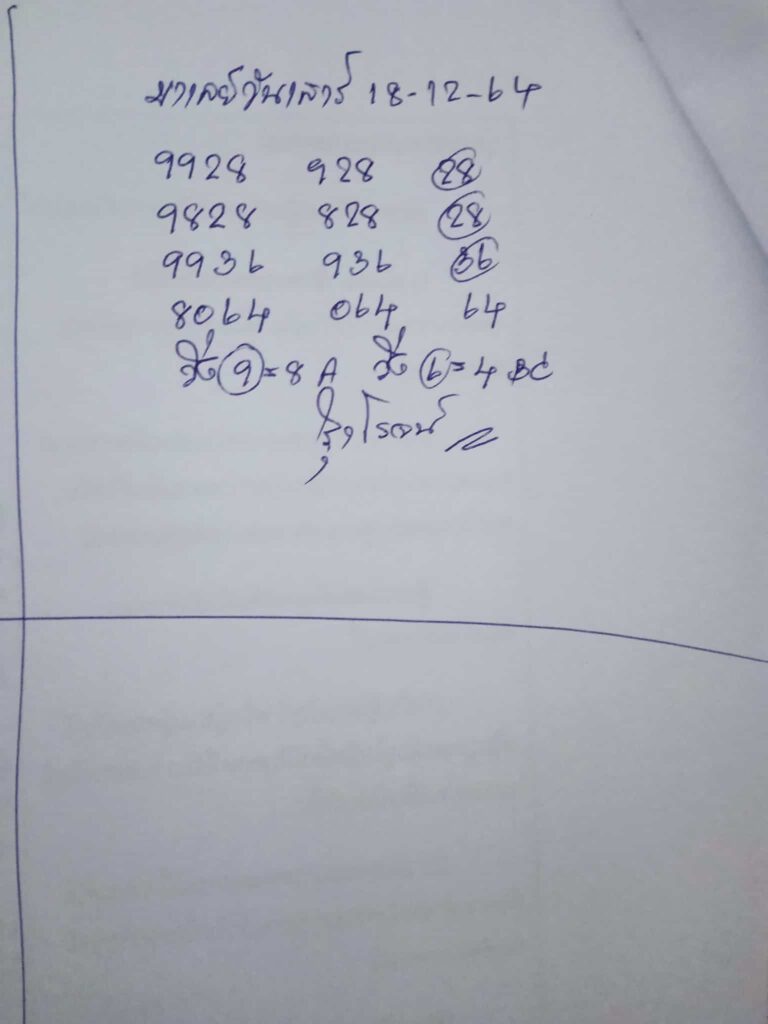 มาเลย์วันเสาร์ 18-12-64
9928 928 28
9828 828 28
9936 936 36
8064 064 64
วิ่ง 9=8 A วิ่ง 6=4 BC
รุ่งโรจน์